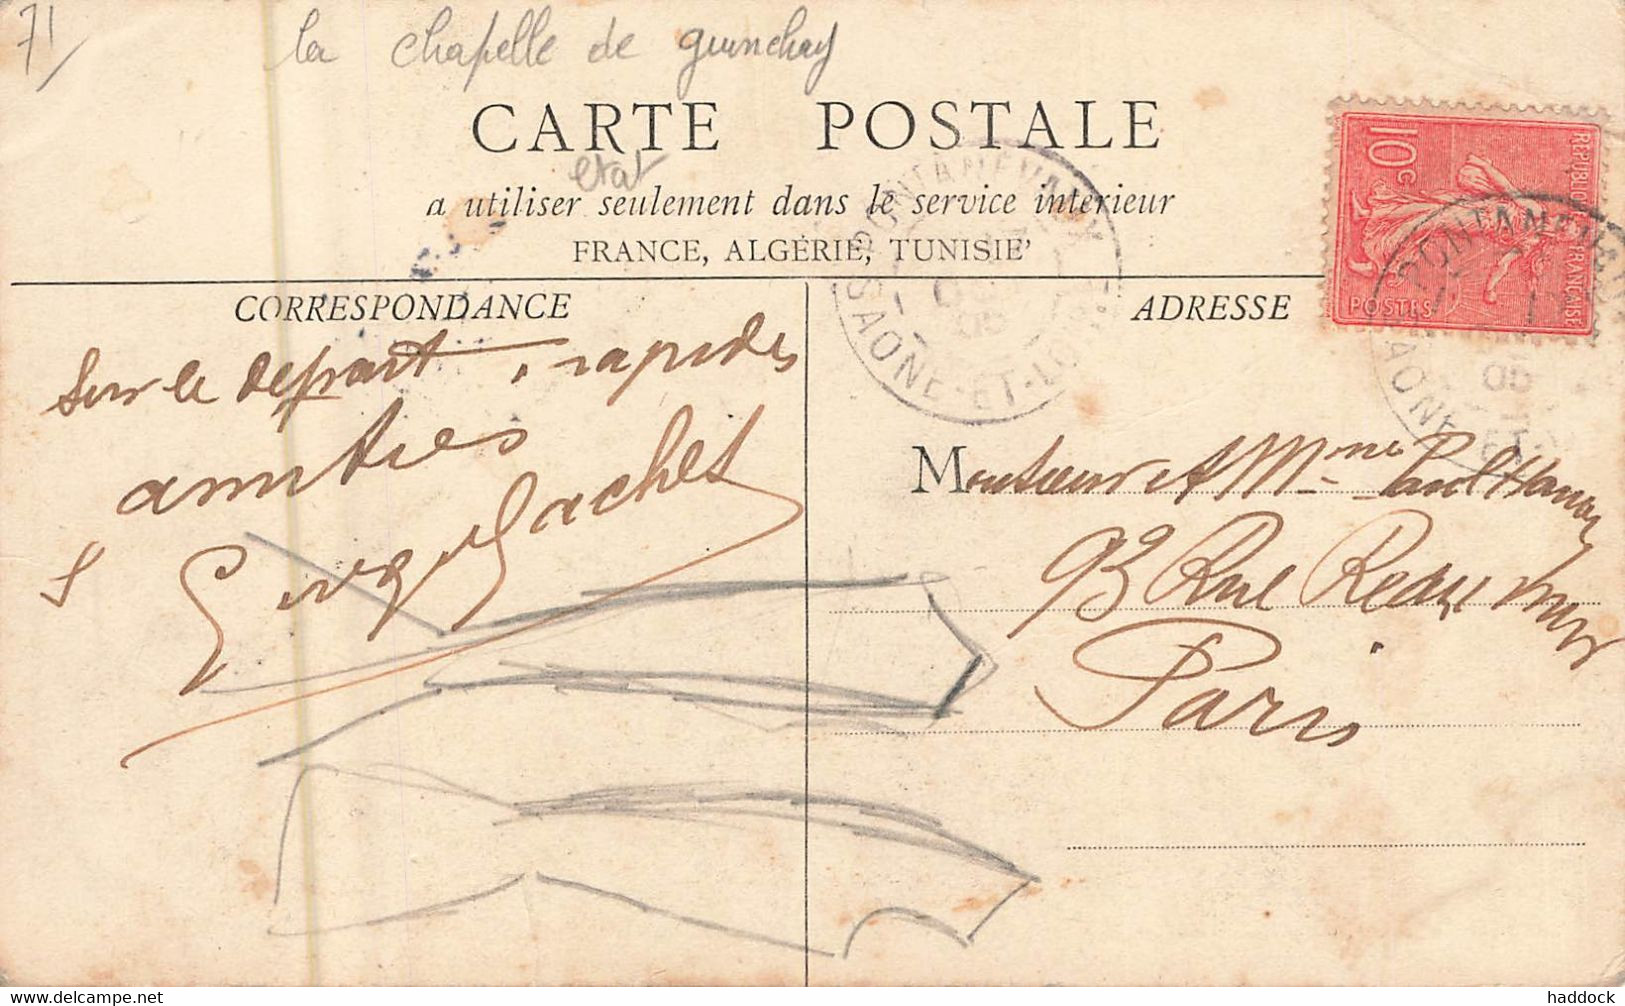 71
la chapelle de guinchay
CARTE POSTALE
etat
a utiliser seulement dans le service interieur
FRANCE, ALGÉRIE, TUNISIE
CORRESPONDANCE
ADRESSE
PONTANEVAUX
SAONE-ET-LOIRE
10c
REPUBLIQUE FRANÇAISE
POSTES
PONTANEVAUX
SAONE
Sur le départ, rapides
amitiés
Gachet
Monsieur et Mme Paul
93 Rue Reaumur
Paris
delcampe.net
haddock